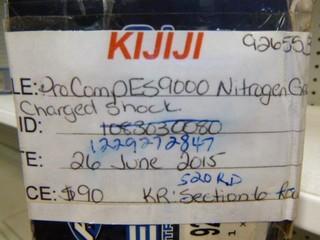 KIJIJI
926553
LE: ProComp ES9000 Nitrogen Gas
Charged Shock
ID: 1083030080
1229272847
TE: 26 June 2015
S20 RD
CE: $90 KR: Section 6